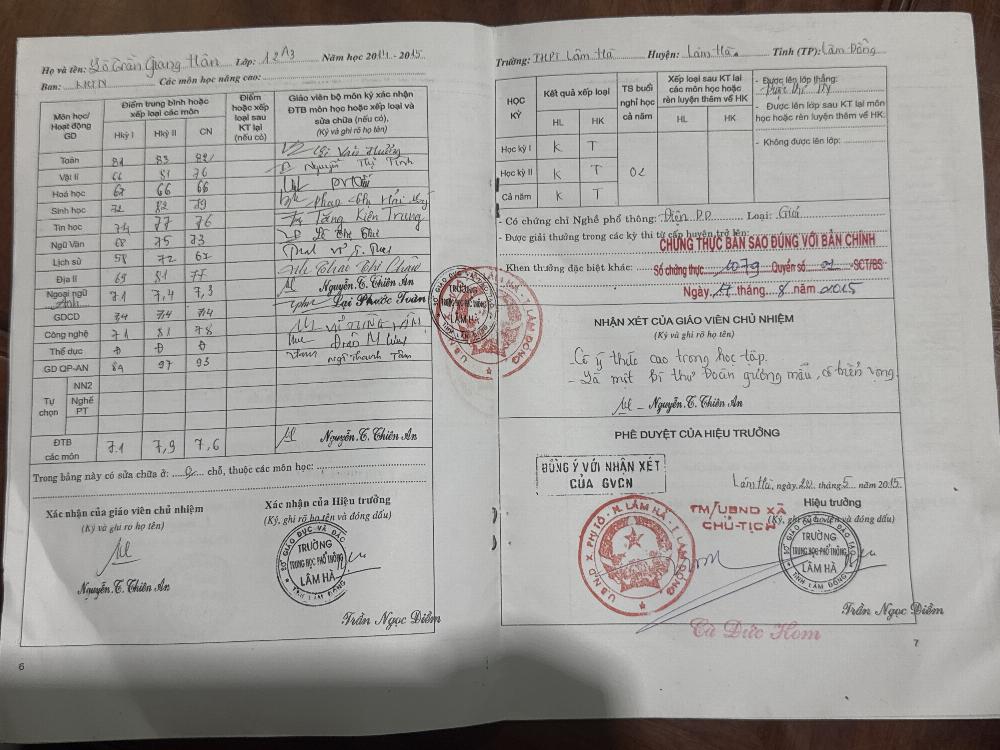 Họ và tên: Lê Trần Giang Hân Lớp: 12A3 Năm học 2014 - 2015
Ban: KHTN Các môn học nâng cao:
Môn học/ Hoạt động GD
Điểm trung bình hoặc xếp loại các môn
Hkỳ I Hkỳ II CN
Điểm hoặc xếp loại sau KT lại (nếu có)
Giáo viên bộ môn ký xác nhận ĐTB môn học hoặc xếp loại và sửa chữa (nếu có).
(Ký và ghi rõ họ tên)
Toán 8.1 8.3
Vật lí 6.6 8.1 7.6 Nguyễn Thị Tình
Hoá học 6.7 6.6 6.6
Sinh học 7.2 8.2 7.9
Tin học 7.4 7.7 7.6 Tăng Kiên Trung
Ngữ Văn 6.8 7.5 7.3
Lịch sử 5.8 7.2 6.7
Địa lí 6.9 8.1 7.7
Ngoại ngữ Anh 7.1 7,4 7,3 Nguyễn.T.Thiên An
GDCD 7.4 7.4 7.4 Lại Phước Toàn
Công nghệ 7.1 8.1 7.8
Thể dục Đ Đ Đ
GD QP-AN 8.9 9.7 9.5 Ngô Thanh Tâm
Tự chọn
NN2
Nghề PT
ĐTB các môn 7.1 7,9 7,6 Nguyễn.T.Thiên An
Trong bảng này có sửa chữa ở: 0 chỗ, thuộc các môn học:
Xác nhận của giáo viên chủ nhiệm
(Ký và ghi rõ họ tên)
Nguyễn.T.Thiên An
Xác nhận của Hiệu trưởng
(Ký, ghi rõ họ tên và đóng dấu)
SỞ GIÁO DỤC VÀ ĐÀO TẠO
TRƯỜNG
TRUNG HỌC PHỔ THÔNG
LÂM HÀ
TỈNH LÂM ĐỒNG
Trần Ngọc Diễm
6
Trường: THPT Lâm Hà Huyện: Lâm Hà Tỉnh (TP): Lâm Đồng
HỌC KỲ
Kết quả xếp loại
HL HK
TS buổi nghỉ học cả năm
Xếp loại sau KT lại các môn học hoặc rèn luyện thêm về HK
HL HK
- Được lên lớp thẳng:
- Được lên lớp sau KT lại môn học hoặc rèn luyện thêm về HK:
- Không được lên lớp:
Học kỳ I K T
Học kỳ II K T 02
Cả năm K T
- Có chứng chỉ Nghề phổ thông: Điện DD Loại: Giỏi
- Được giải thưởng trong các kỳ thi từ cấp huyện trở lên:
CHỨNG THỰC BẢN SAO ĐÚNG VỚI BẢN CHÍNH
- Khen thưởng đặc biệt khác:
Số chứng thực 1079 Quyển số 01 -SCT/BS
Ngày 17 tháng 8 năm 2015
NHẬN XÉT CỦA GIÁO VIÊN CHỦ NHIỆM
(Ký và ghi rõ họ tên)
- Có ý thức cao trong học tập.
- Là một bí thư Đoàn gương mẫu, có triển vọng.
Nguyễn.T.Thiên An
PHÊ DUYỆT CỦA HIỆU TRƯỞNG
ĐỒNG Ý VỚI NHẬN XÉT
CỦA GVCN
Lâm Hà, ngày 22 tháng 5 năm 2015
TM/UBND XÃ
CHỦ TỊCH
Hiệu trưởng
(Ký, ghi rõ họ tên và đóng dấu)
U.B.N.D X. PHI TÔ - H. LÂM HÀ - T. LÂM ĐỒNG
SỞ GIÁO DỤC VÀ ĐÀO TẠO
TRƯỜNG
TRUNG HỌC PHỔ THÔNG
LÂM HÀ
TỈNH LÂM ĐỒNG
Trần Ngọc Diễm
Cà Đức Hom
7